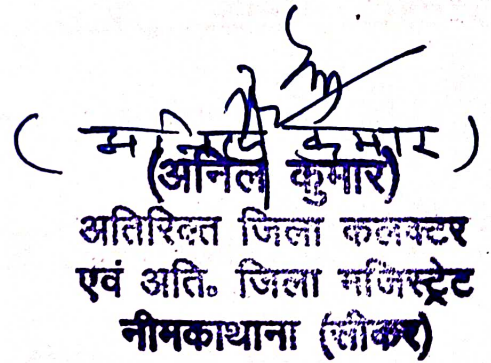 ( कुमार )
(अनिल कुमार)
अतिरिक्त जिला कलक्टर
एवं अति॰ जिला मजिस्ट्रेट
नीमकाथाना (सीकर)